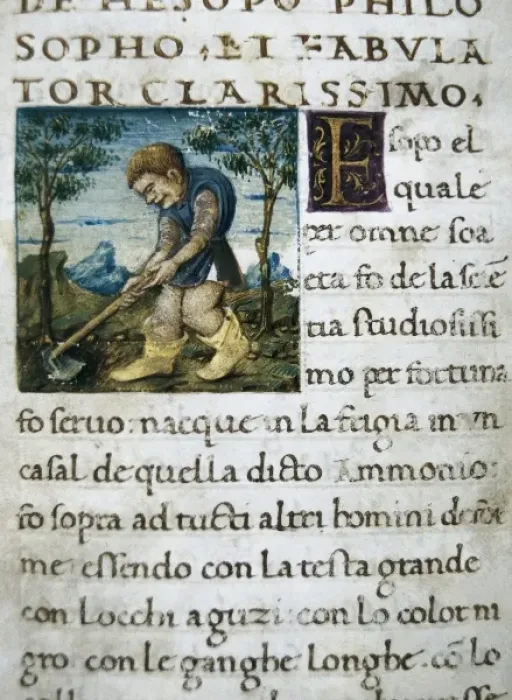 DE HESOPO PHILO
SOPHO .ET FABVLA
TOR CLARISSIMO.
Esopo el
quale
per omne soa
eta fo de la sciē
tia studiosissi
mo per fortuna
fo seruo: nacque in La frigia in vn
casal de quella dicto Ammonio:
fo sopra ad tucti altri homini
me essendo con La testa grande
con Locchi aguzi: con Lo color ni
gro con le ganghe Longhe. cō Lo